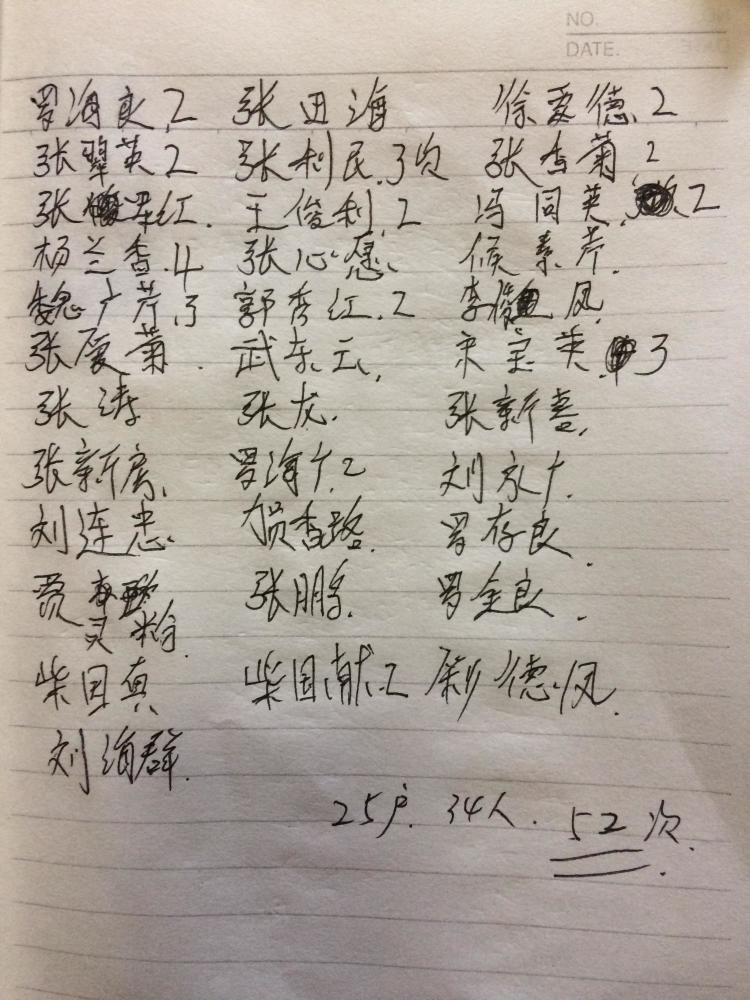 NO.
DATE.
罗海良.2 张进海 徐爱德.2
张翠英2 张利民.3次 张香菊2
张 红. 王俊利.2 冯同英.2
杨兰香.4 张心愿. 侯素芹.
魏广芹.3 郭秀红.2 李俊凤.
张夏菊. 武东云. 宋宝英.3
张涛 张龙. 张新喜.
张新房. 罗海个.2 刘永个.
刘连忠. 香 . 罗存良.
贾 张鹏 . 罗金良.
灵粉.
柴国真 柴国献.2 德凤.
刘海群.
25户. 34人. 52次.